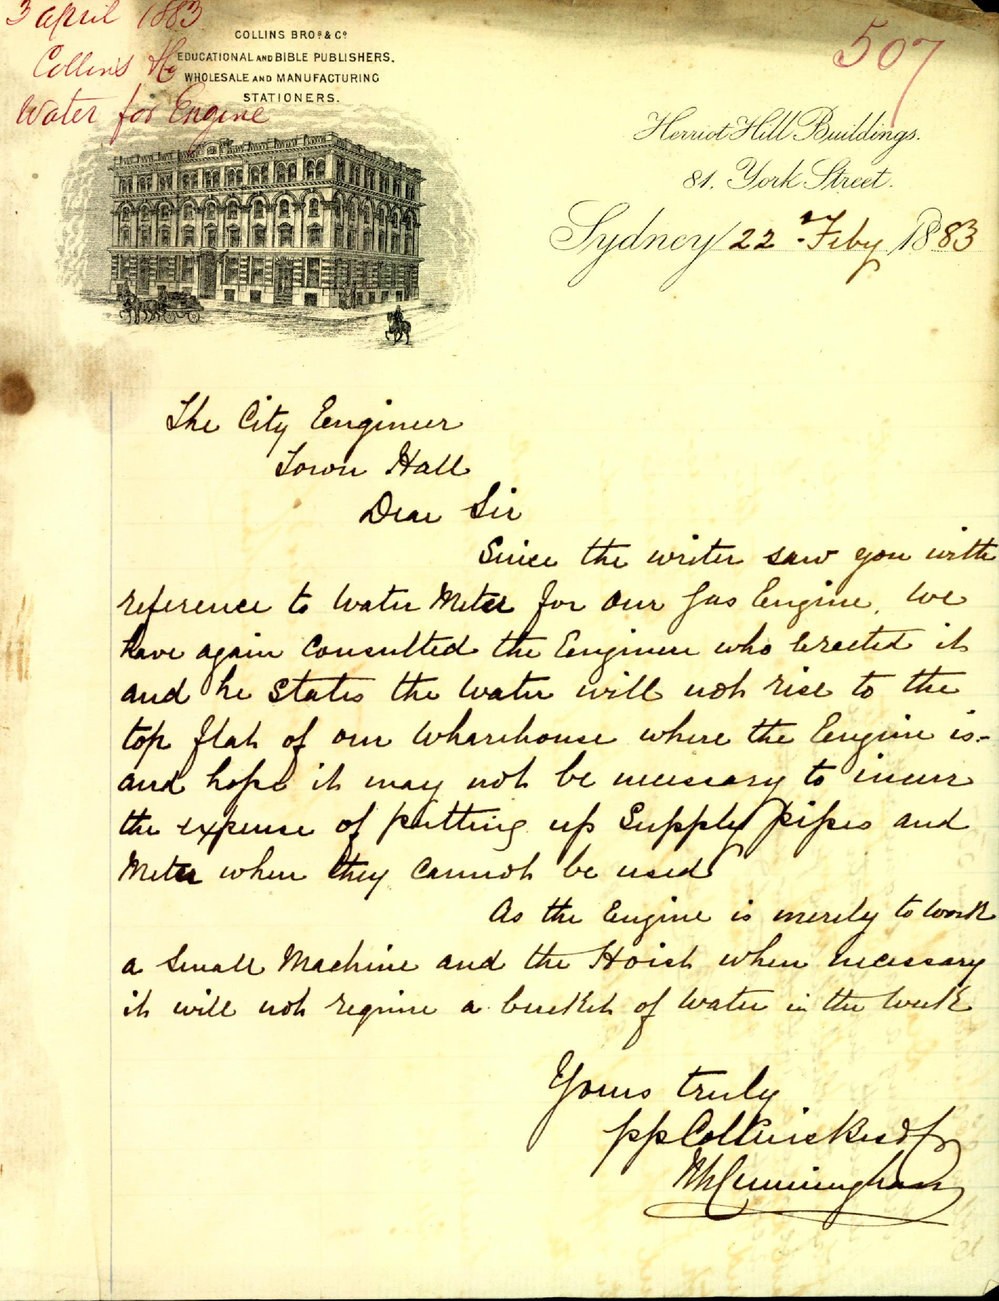 3 april 1883
Collins
Water for Engine
507
COLLINS BROS & Co
EDUCATIONAL AND BIBLE PUBLISHERS.
WHOLESALE AND MANUFACTURING
STATIONERS.
Herriot Hill Buildings.
81. York Street.
Sydney 22 Feby 1883
The City Engineer
Town Hall
Dear Sir
Since the writer saw you with
reference to Water Meter for our Gas Engine, we
have again consulted the Engineer who erected it
and he states the water will not rise to the
top flat of our wharehouse where the Engine is -
and hope it may not be necessary to incur
the expense of putting up Supply pipes and
Meter when they cannot be used
As the Engine is merely to work
a Small Machine and the Hoist when necessary
it will not require a bucket of water in the week
Yours truly
pp Collins
Cunningham